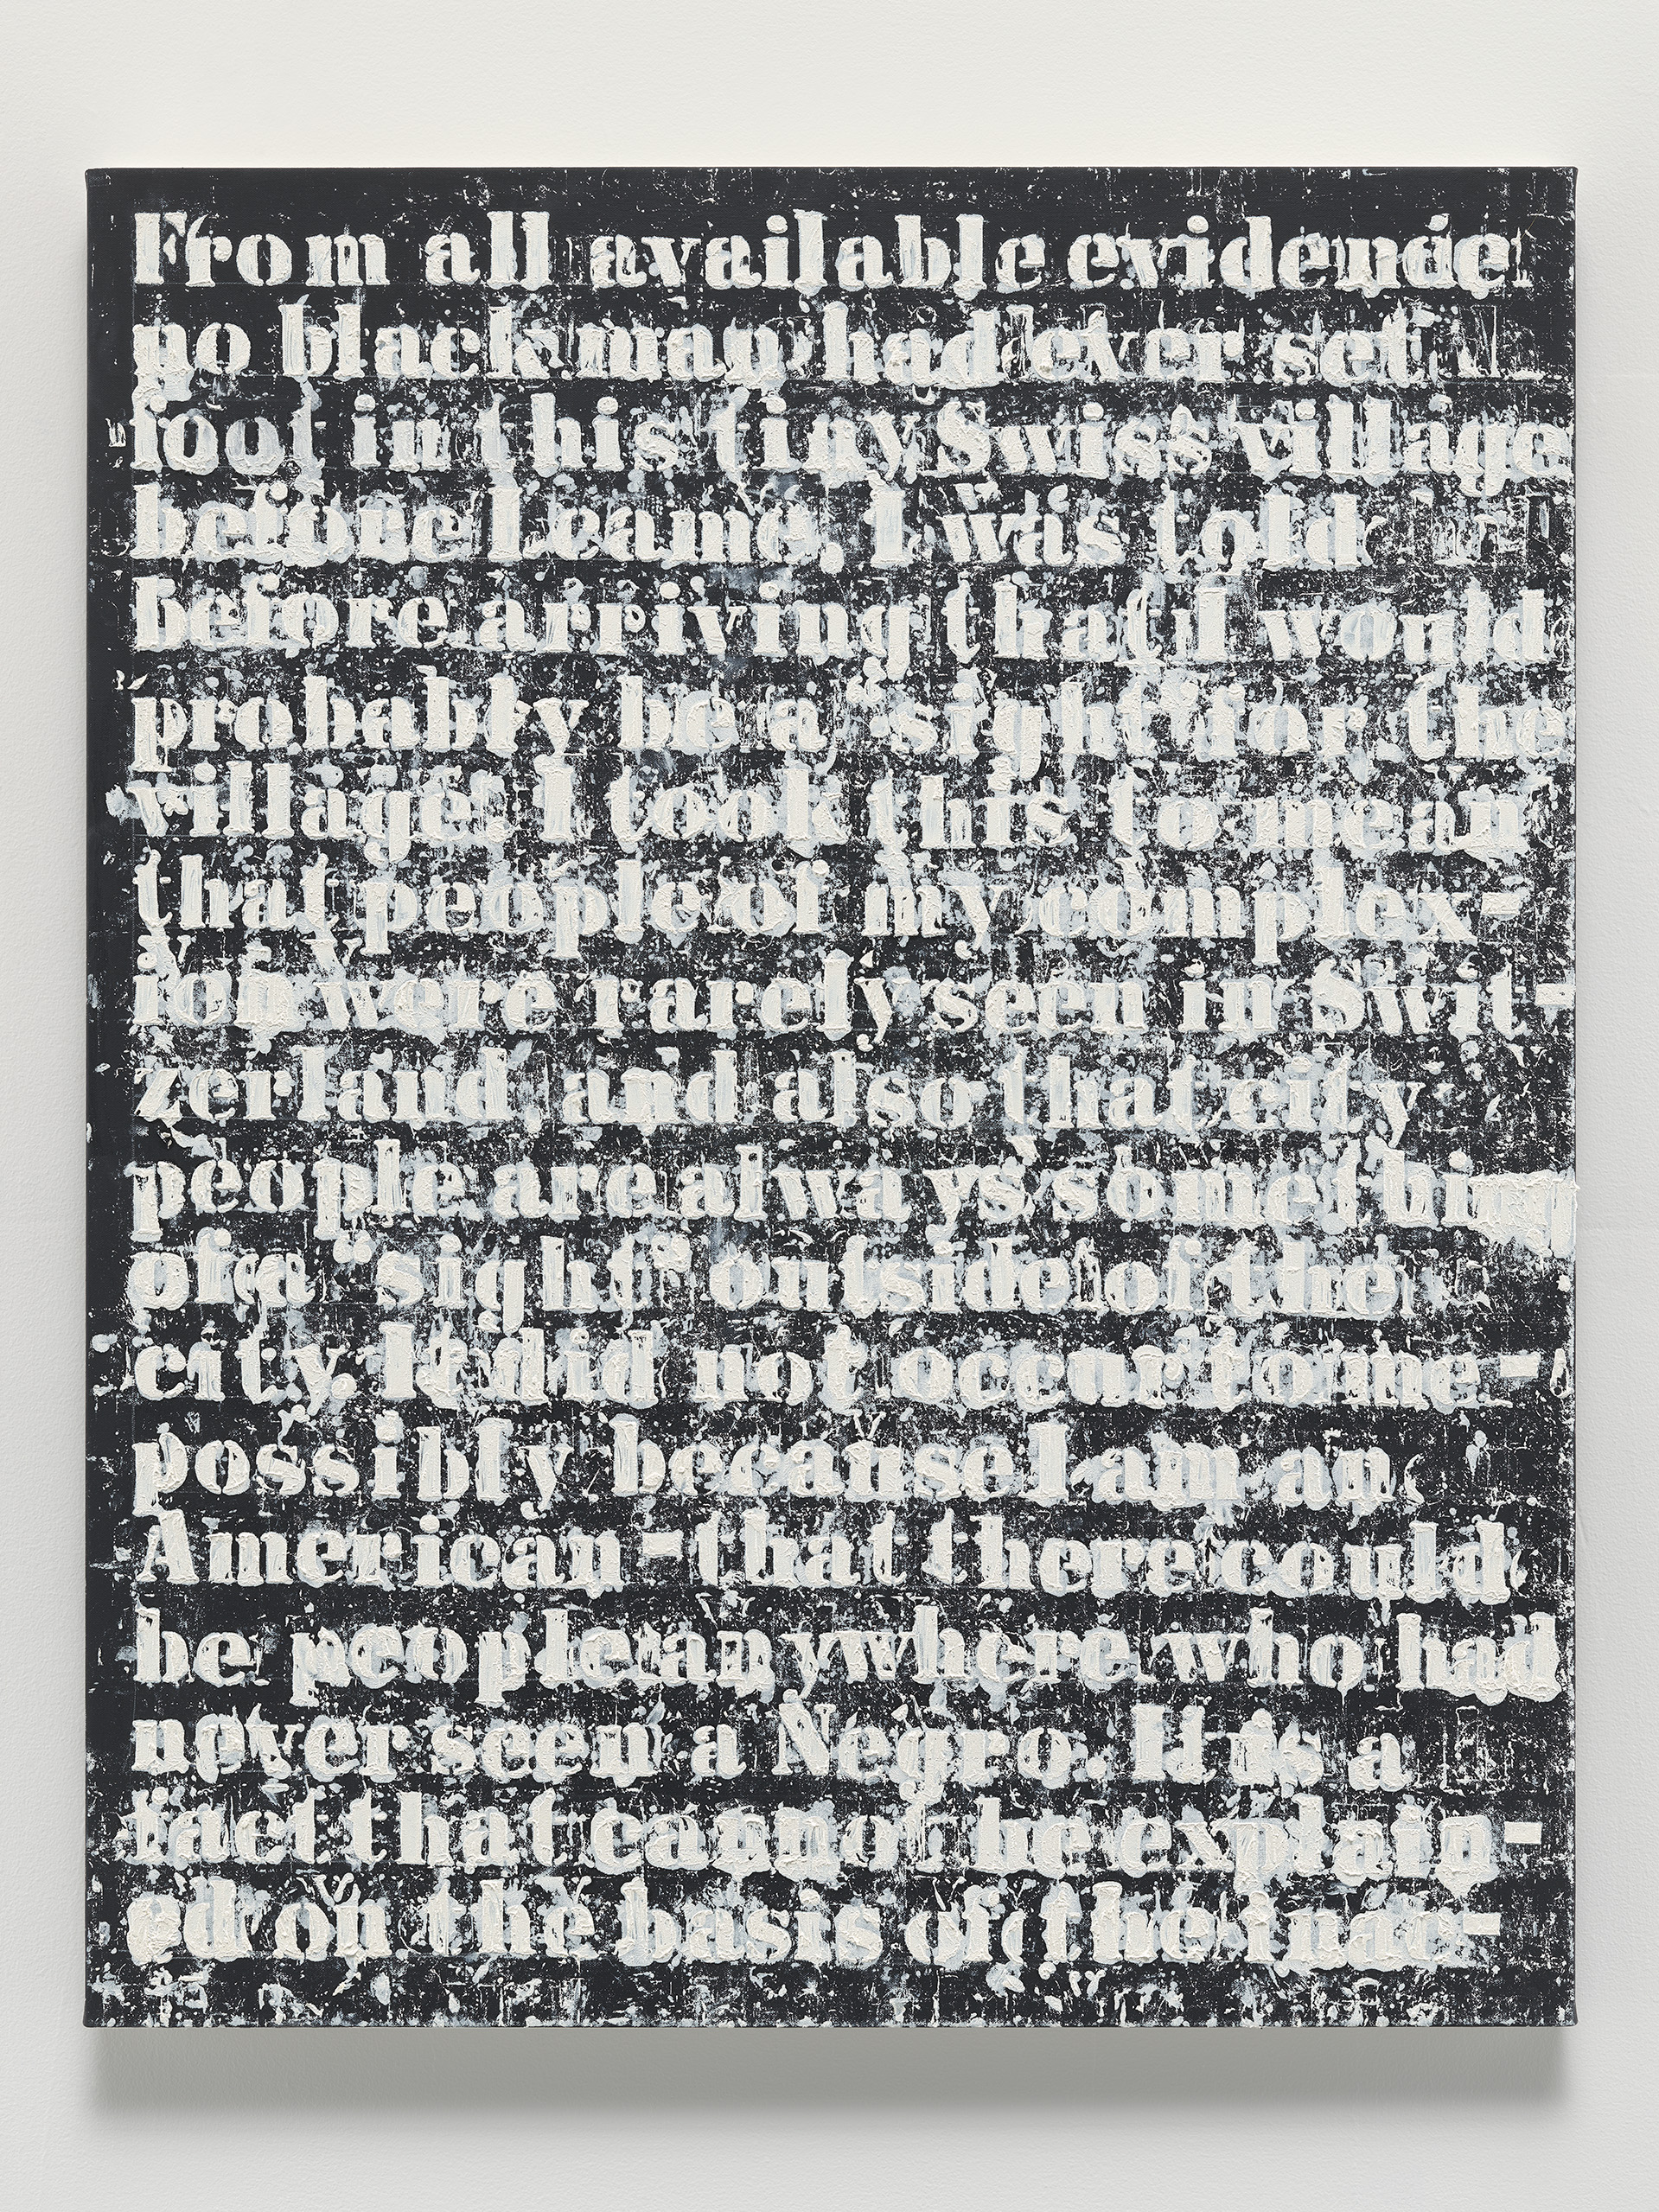 From all available evidence
no black man had ever set
foot in this tiny Swiss village
before I came. I was told
before arriving that I would
probably be a "sight" for the
village. I took this to mean
that people of my complex-
ion were rarely seen in Swit-
zerland, and also that city
people are always something
of a "sight" outside of the
city. It did not occur to me-
possibly because I am an
American-that there could
be people anywhere who had
never seen a Negro. It is a
fact that cannot be explain-
ed on the basis of the inac-